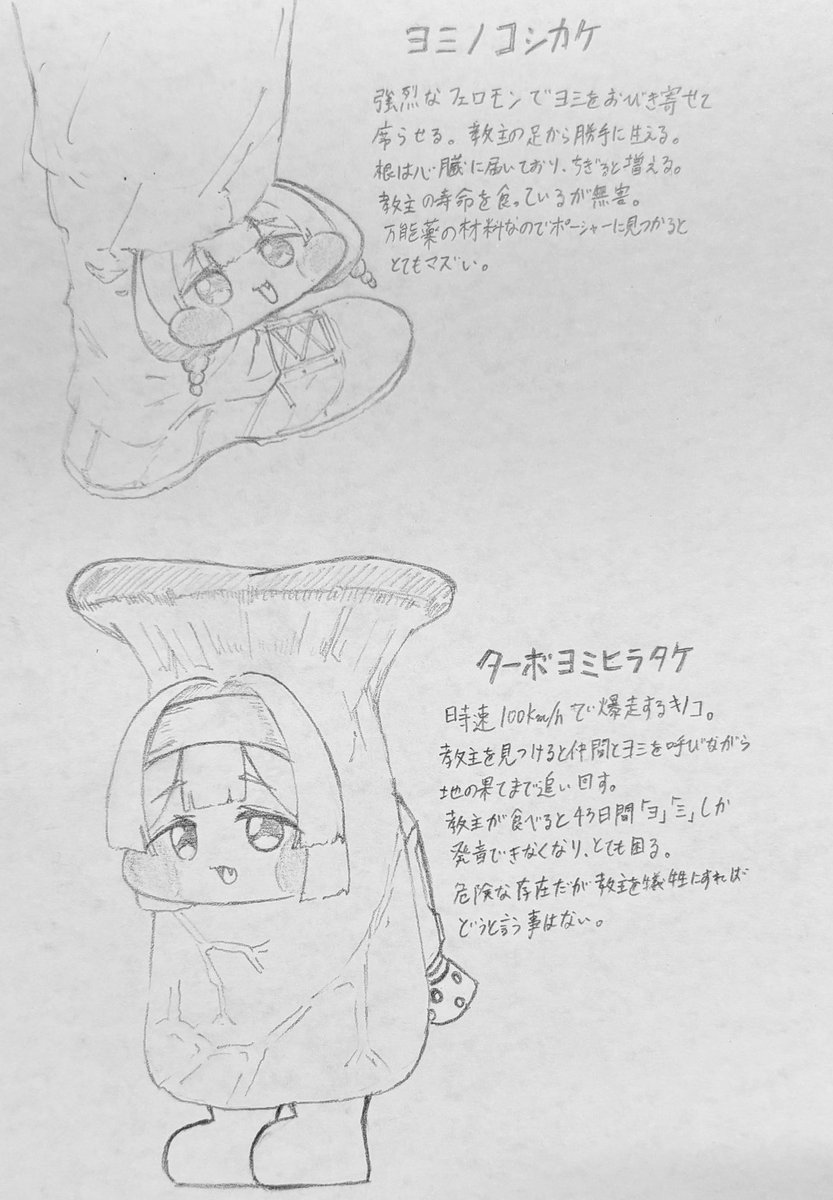 ヨミノコシカケ
強烈なフェロモンでヨミをおびき寄せて
席らせる。教主の足から勝手に生える。
根は心臓に届いており、ちぎると増える。
教主の寿命を食っているが無害。
万能薬の材料なのでポーシャーに見つかると
とてもマズい。
ターボヨミヒラタケ
時速100km/hで爆走するキノコ。
教主を見つけると仲間とヨミを呼びながら
地の果てまで追い回す。
教主が食べると43日間「ヨ」「ミ」しか
発音できなくなり、とても困る。
危険な存在だが教主を犠牲にすれば
どうと言う事はない。